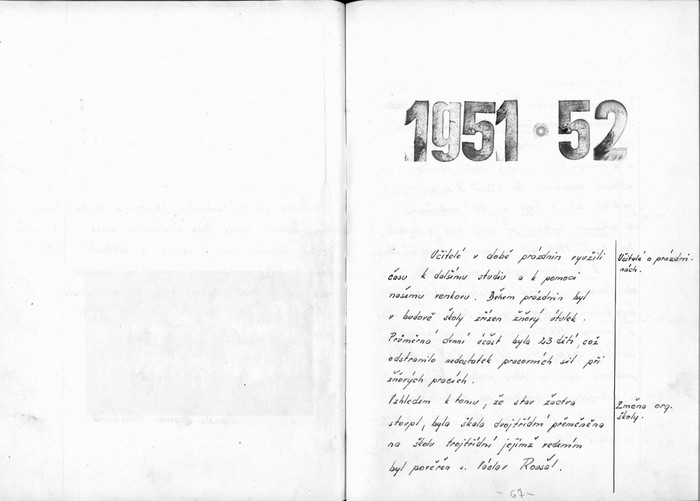 1951 • 52
Učitelé v době prázdnin využili
času k dalšímu studiu a k pomoci
našemu venkovu. Během prázdnin byl
v budově školy zřízen žňový útulek.
Průměrná denní účast byla 23 dětí, což
odstranilo nedostatek pracovních sil při
žňových pracích.
Vzhledem k tomu, že stav žactva
stoupl, byla škola dvojtřídní přeměněna
na školu trojtřídní jejímž vedením
byl pověřen s. Václav Rousal.
Učitelé o prázdni-
nách.
Změna org.
školy.
- 67 -